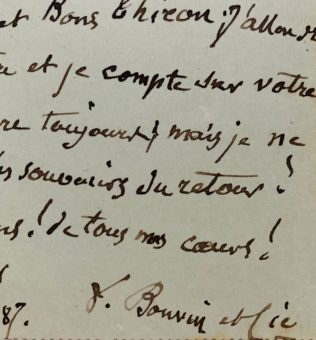 et Bons Chiron; j'allondr
re et je compte sur votre
re toujours! mais je ne
les souvenirs du retour!
ns! de tous mes cœurs!
87. F. Bonvin et Cie